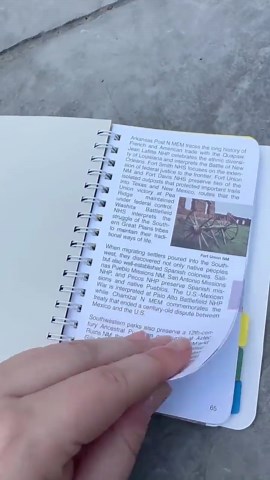 Arkansas Post N MEM traces the long history of
French and American trade with the Quapaw.
Jean Lafitte NHP celebrates the ethnic diversi-
ty of Louisiana and interprets the Battle of New
Orleans. Fort Smith NHS focuses on the exten-
sion of federal justice to the frontier. Fort Union
NM and Fort Davis NHS preserve two of the
isolated outposts that protected important trails
into Texas and New Mexico, routes that the
Union victory at Pea
Ridge maintained
under federal control.
Washita Battlefield
NHS interprets the
struggle of the South-
ern Great Plains tribes
to maintain their tradi-
tional ways of life.
Fort Union NM
When migrating settlers poured into the South-
west, they discovered not only native peoples
but also well-established Spanish colonies. Sali-
nas Pueblo Missions NM, San Antonio Missions
NHP, and Pecos NHP preserve Spanish mis-
sions and native Pueblos. The U.S.-Mexican
War is interpreted at Palo Alto Battlefield NHP
while Chamizal N MEM commemorates the
treaty that ended a century-old dispute between
Mexico and the U.S.
Southwestern parks also preserve a 12th-cen-
tury Ancestral
at Aztec
Ruins NM
65